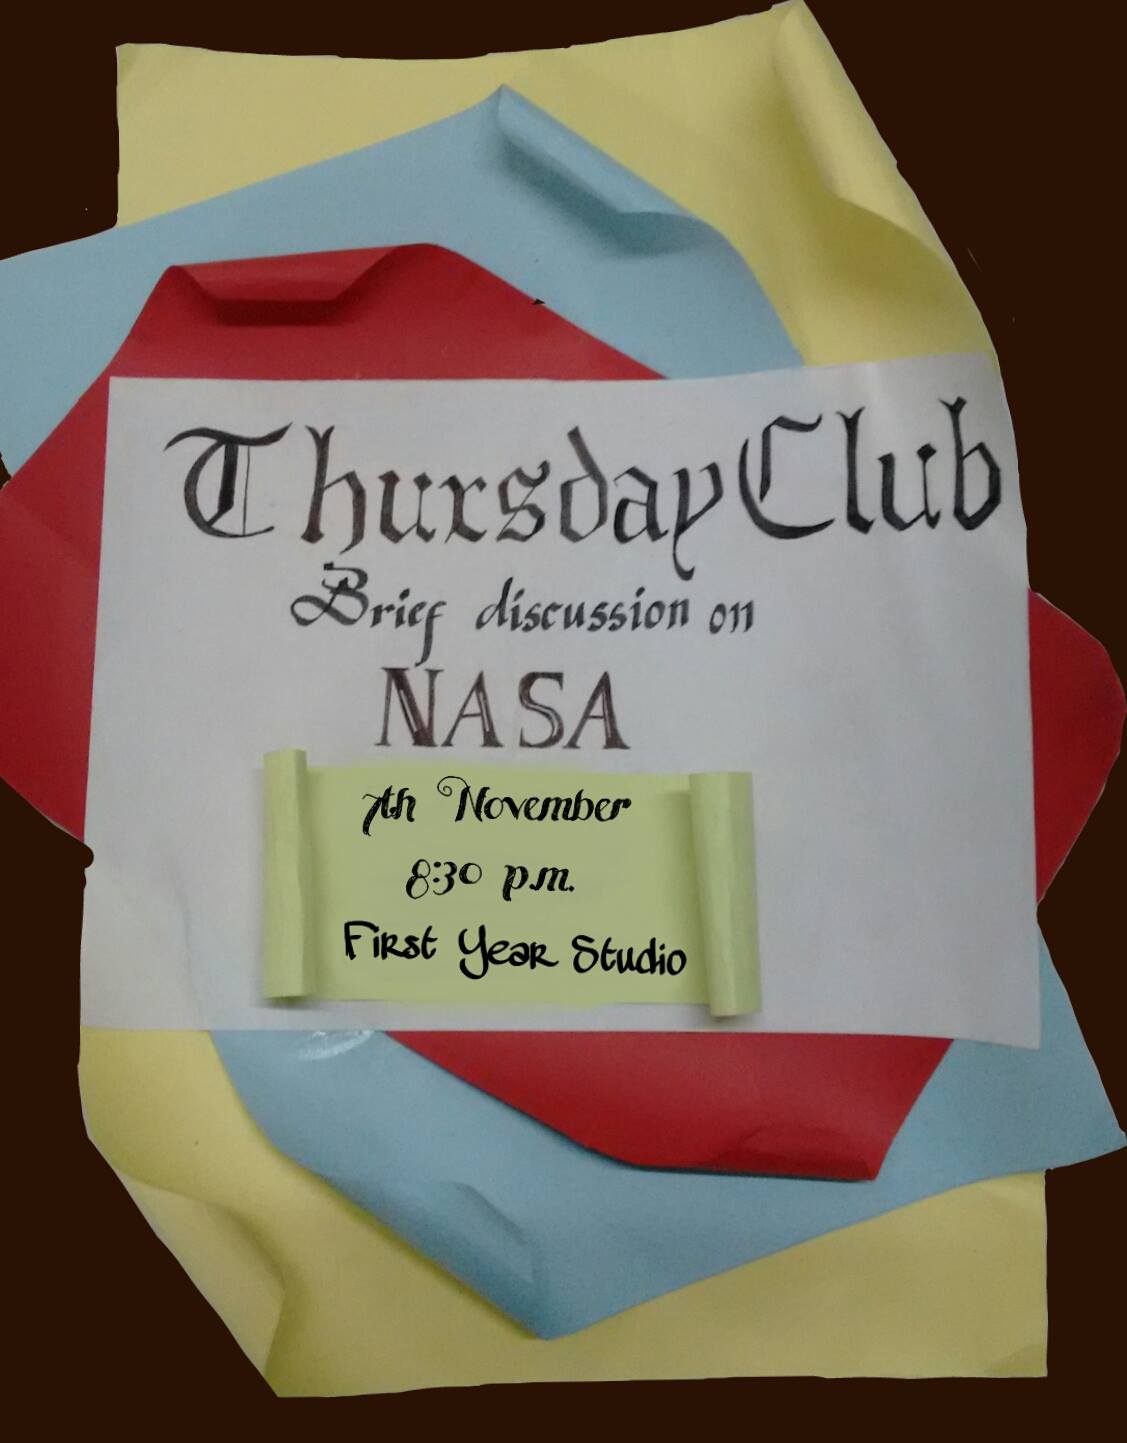 Thursday Club
Brief discussion on
NASA
7th November
8:30 p.m.
First Year Studio